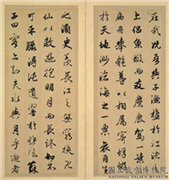 在我況吾與子漁樵於江渚
上侶魚蝦而友麋鹿駕一葉
扁舟舉匏尊以相屬寄蜉蝣
於天地渺滄海之一粟哀吾生
之須臾羨長江之無窮挾飛
仙以遨遊抱明月而長終知不
可乎驟得託遺響於悲風蘇
子曰客亦知夫水與月乎逝者
國立故宮博物院
NATIONAL PALACE MUSEUM